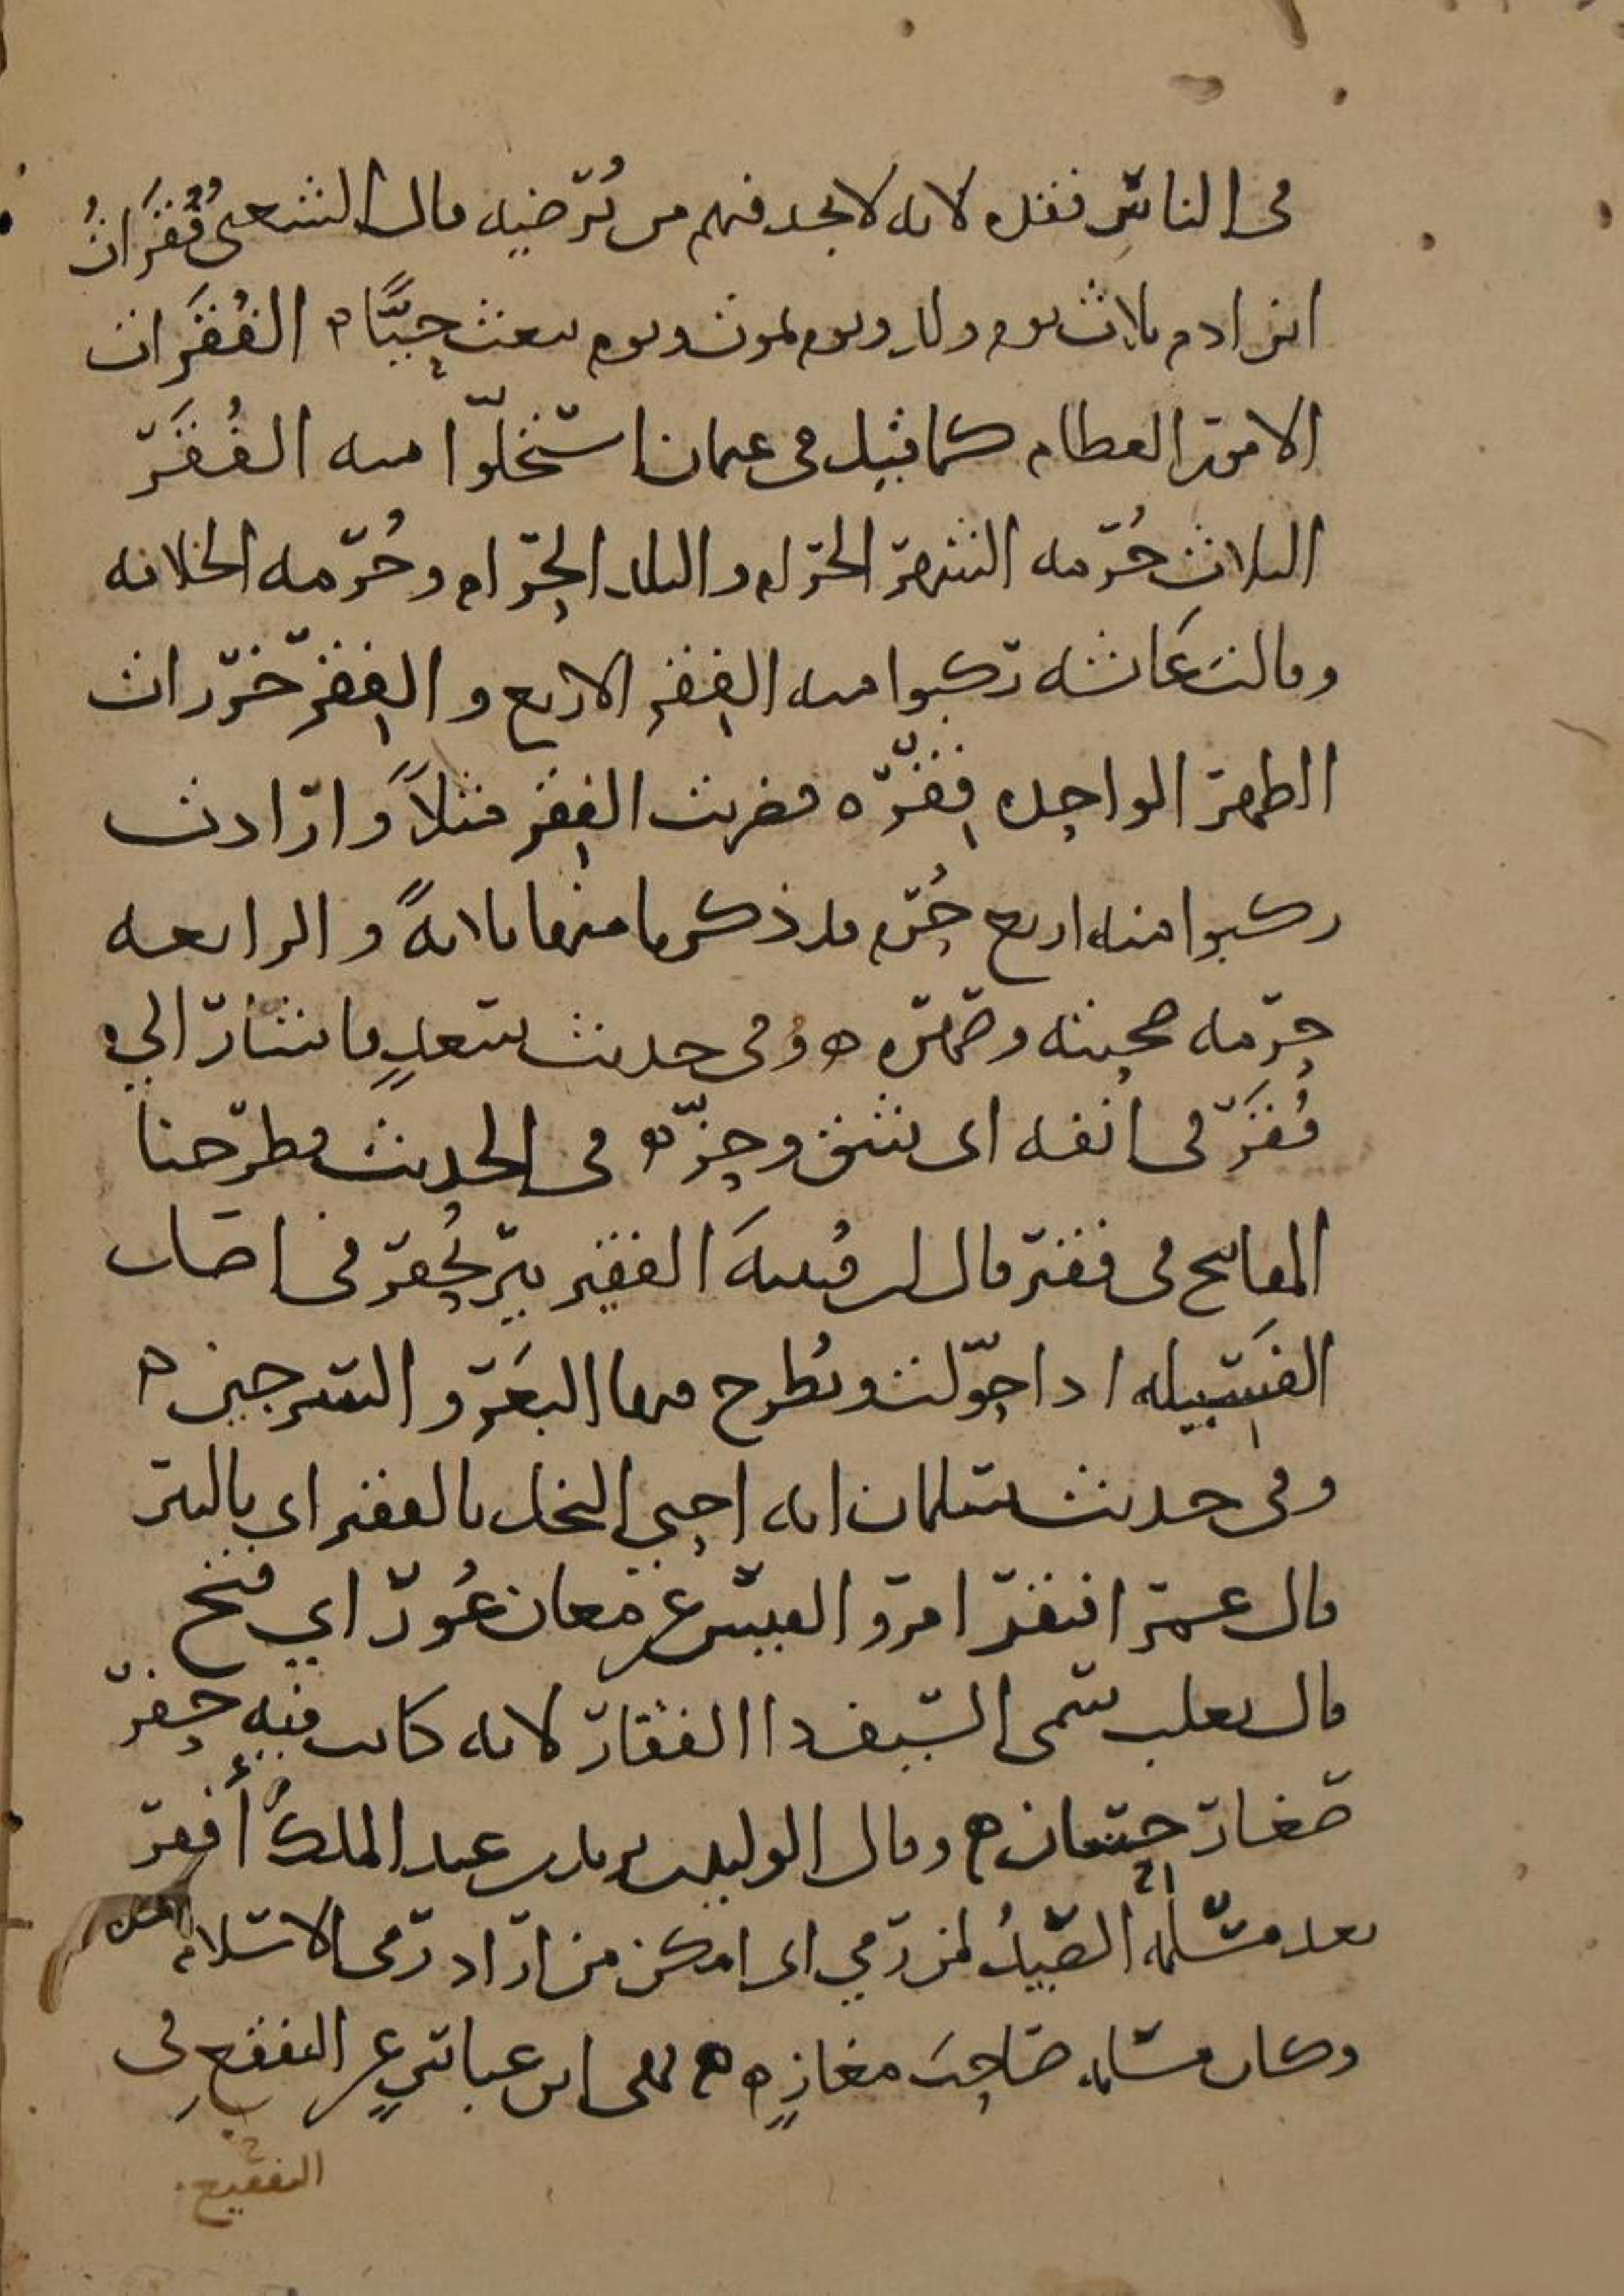 في الناس فقل لانه لا يجد فيهم من يُرضيه قال الشعبي فُقَرَاتُ
ابن ادم ثلاث يوم ولد ويوم يموت ويوم يبعث حيًّا ه الفُقَرَات
الامور العظام كما قيل في عثمان استحلّوا منه الفُقَرَ
الثلاث حُرمه الشهر الحرام والبلد الحرام وحُرمه الخلافه
وقالت عَائشه ركبوا منه الفِقَر الاربع والفِقَر خرزات
الظهر الواحده فِقره فضربت الفِقَر مثلاً وارادت
ركبوا منه اربع حُرم قد ذكرنا منها ثلاثةً والرابعه
حرمه صحبته وصهره ه وفي حديث سعدٍ فاشار الي
فُقَر في انفه اي شق وحزّ ه في الحديث فطرحنا
المفاتيح في فقير قال ابن قُتيبهَ الفقير بير تُحفر في اصل
الفَسيله اذا حوّلت ويُطرح فيها البَعَر والسرجين ه
وفي حديث سلمان انه احيى النخل بالفقير اي بالبير
قال عمر افتقر امرو القيس عن معان عُورٍ اي فتح
قال ثعلب سمى السيف ذا الفقار لانه كانت فيه حفر
صغار حسان ه وقال الوليد بن يزيد بن عبد الملك أَفقر
بعد مسلمه الصيدُ لمن رمي اي امكن من اراد رمى الاسلام
وكان مسلمه صَاحبَ مغازٍ ه ه نهى ابن عباسٍ عن التفقع في
التفقيع